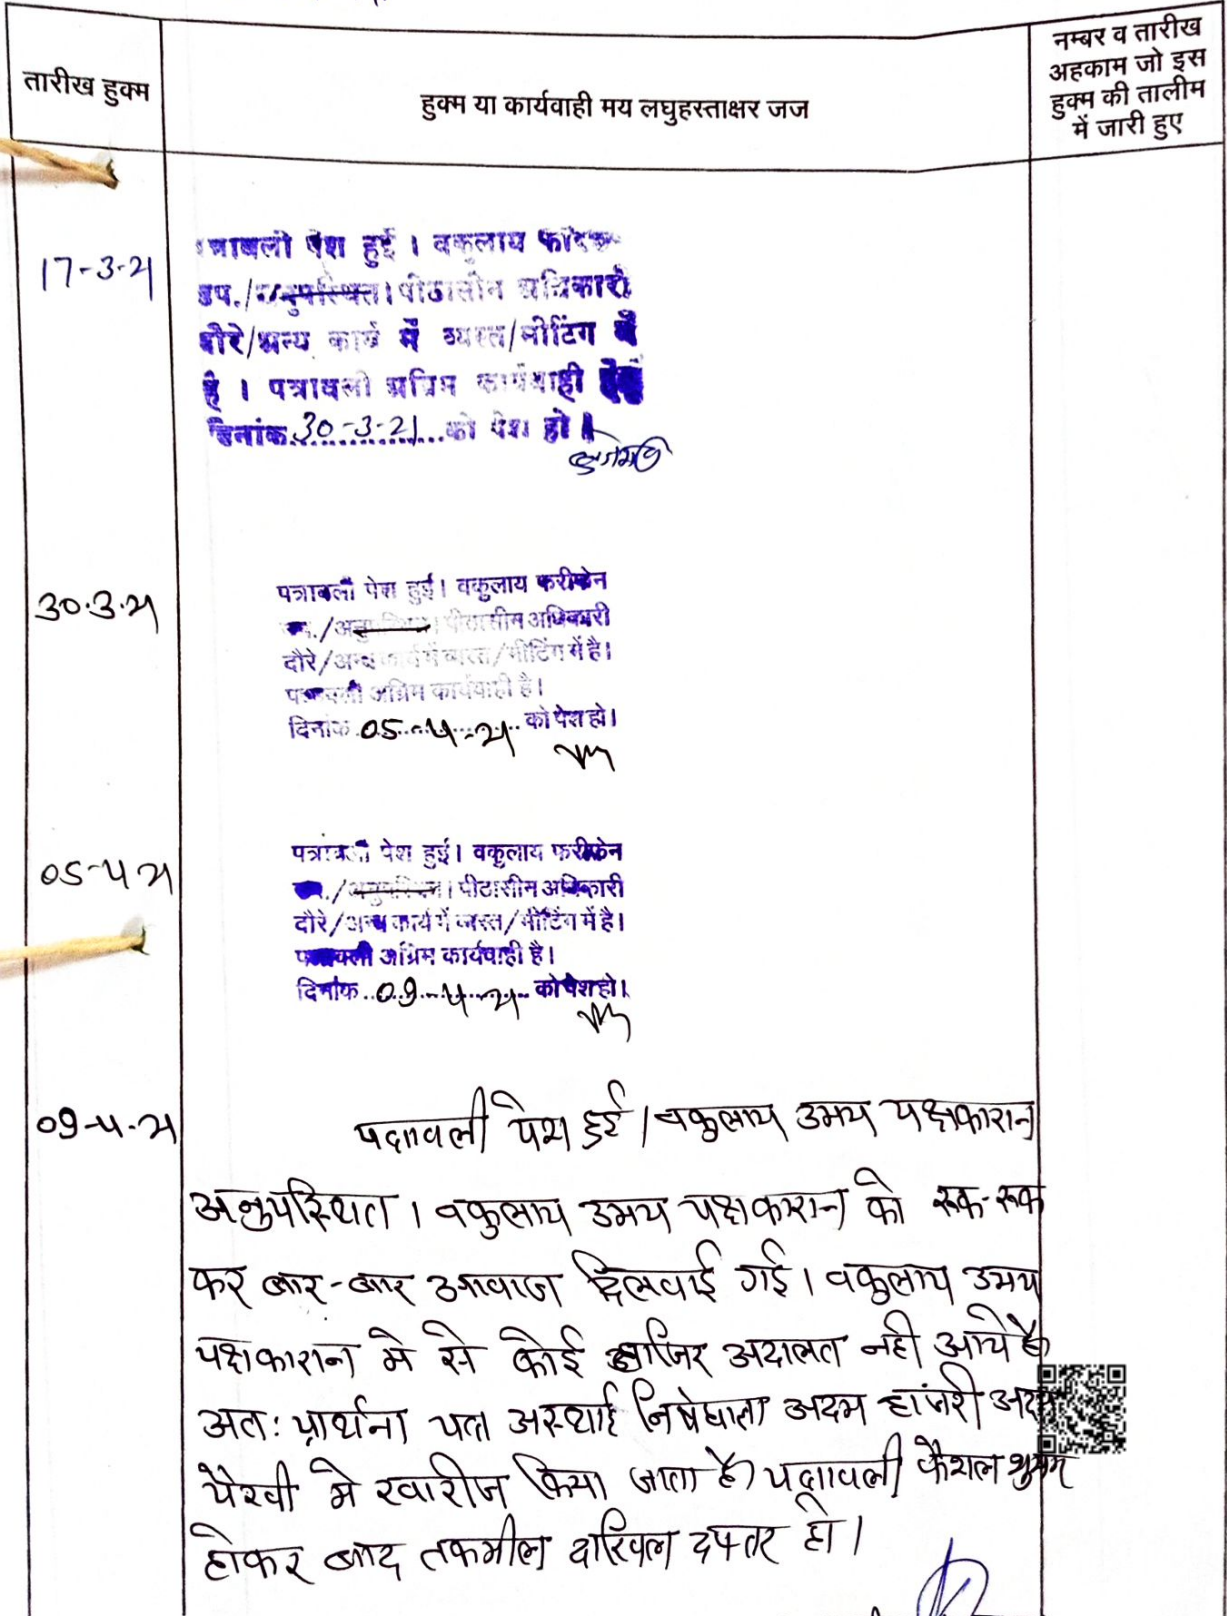 तारीख हुक्म
हुक्म या कार्यवाही मय लघुहस्ताक्षर जज
नम्बर व तारीख
अहकाम जो इस
हुक्म की तालीम
में जारी हुए
17-3-21
पत्रावली पेश हुई । वकुलाय
उप./अनुपस्थित। पीठासीन अधिकारी
दौरे/अन्य कार्य में व्यस्त/मीटिंग में
है । पत्रावली अग्रिम कार्यवाही हेतु
दिनांक 30-3-21 को पेश हो ।
30.3.21
पत्रावली पेश हुई। वकुलाय फरीकेन
उप./अनुपस्थित। पीठासीन अधिकारी
दौरे/अन्य कार्य में व्यस्त/मीटिंग में है।
पत्रावली अग्रिम कार्यवाही है।
दिनांक 05-4-21 को पेश हो।
05-4-21
पत्रावली पेश हुई। वकुलाय फरीकेन
उप./अनुपस्थित। पीठासीन अधिकारी
दौरे/अन्य कार्य में व्यस्त/मीटिंग में है।
पत्रावली अग्रिम कार्यवाही है।
दिनांक 09-4-21 को पेश हो।
09-4-21
पत्रावली पेश हुई। वकुलाय उभय पक्षकारान
अनुपस्थित। वकुलाय उभय पक्षकारान को रूक-रूक
कर बार-बार आवाज दिलवाई गई। वकुलाय उभय
पक्षकारान मे से कोई हाजिर अदालत नही आये है
अत: प्रार्थना पत्र अस्थाई निषेधाज्ञा अदम हाजरी अदम
पैरवी मे खारीज किया जाता है। पत्रावली फैशल शुमार
होकर बाद तकमील दाखिल दफ्तर हो।